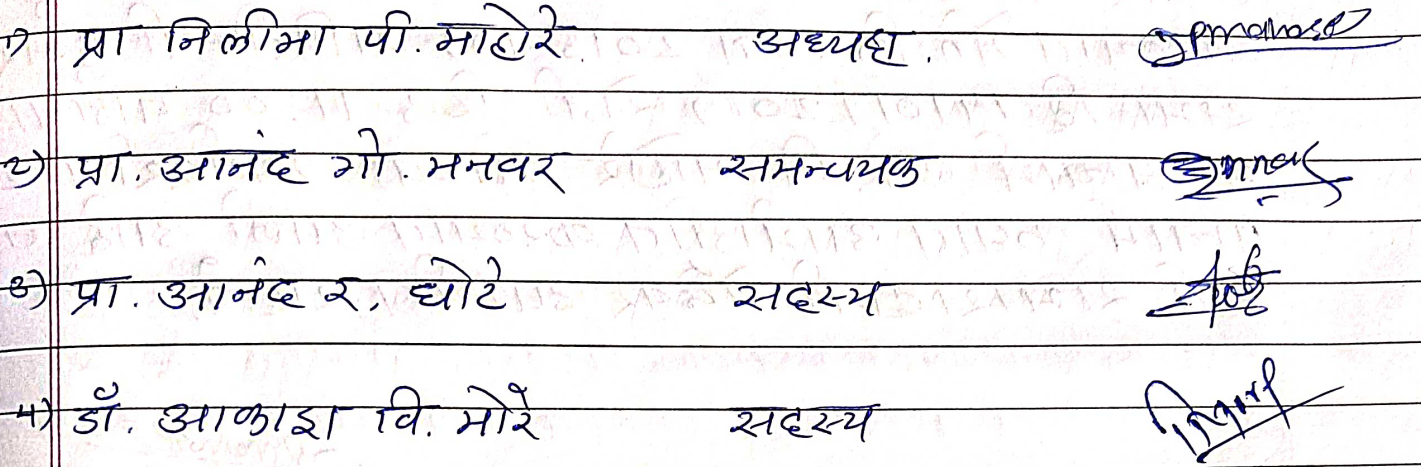 १) प्रा निलीमा पी. माहोरे. अध्यक्ष.
२) प्रा. आनंद गो. मनवर समन्वयक
३) प्रा. आनंद र. धोटे सदस्य
४) डॉ. आकाश वि. मोरे सदस्य